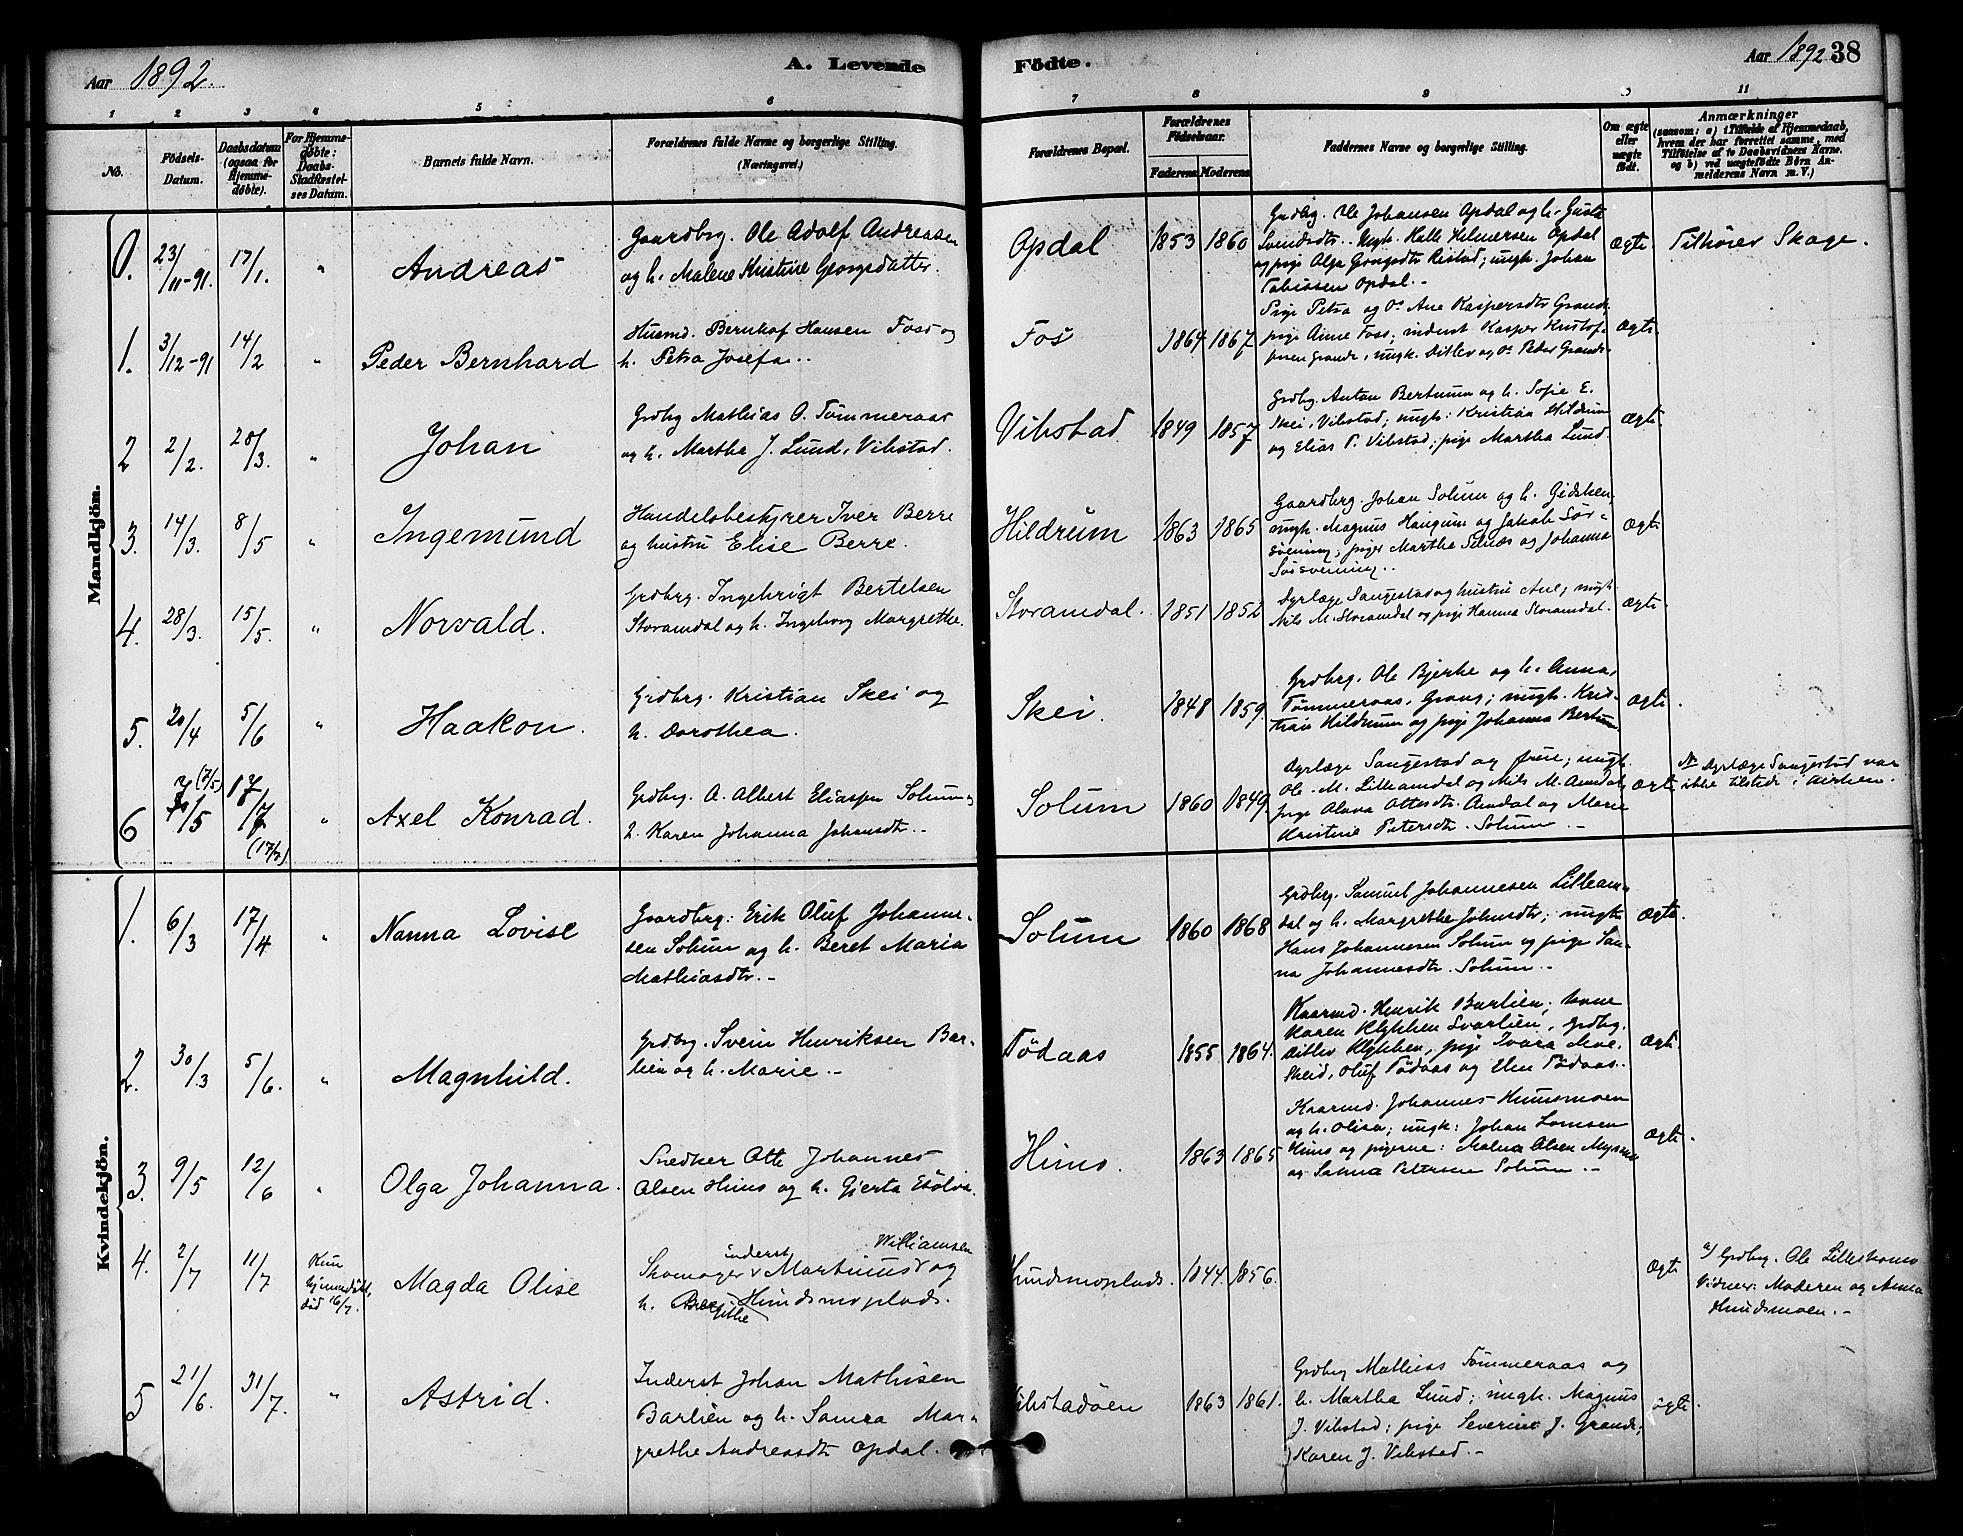 Aar 1892.
A. Levende
Födte.
Aar 1892
38
1 2 3 4 5 6 7 8 9 11
No.
Födsels-
Datum.
Daabsdatum
(ogsaa for
Hjemme-
döbte).
For Hjemme-
döbte:
Daabs-
Stadfæstel-
ses Datum.
Barnets fulde Navn.
Forældrenes fulde Navne og borgerlige Stilling.
(Næringsvei.)
Forældrenes Bopæl.
Forældrenes
Födselsaar.
Faderens Moderens
Faddernes Navne og borgerlige Stilling.
Om ægte
eller
uægte
födt.
Anmærkninger
(saasom: a) i Tilfælde af Hjemmedaab,
hvem der har forrettet samme, med
Tilföielse af to Daabsvidners Navne.
og b) ved uægtefödte Börn An-
melderens Navn m. V.)
Mandkjön.
0. 23/11-91. 17/1. " Andreas
Gaardbrg. Ole Adolf Andreasen
og h. Malene Kristine Georgsdatter.
Opdal 1853 1860
Grdbrg. Ole Johansen Opdal og h. Gusta
Svendsdtr. Ungk. Halle Hilmersen Opdal
og pige Olga Georgsdtr Ristad; ungk. Johan
Tobiassen Opdal.-
Ægte. Tilhører Skage.
1. 3/12-91 14/2 " Peder Bernhard
Husmd. Bernhof Hansen Foss og
h. Petra Josefa..
Fos 1864 1867
Pige Petra og Do Ane Kaspersdtr Grande
pige Anne Foss; inderst Kasper Kristof-
fersen Grande, ungk. Ditlev og Do Peder Grande.
Ægte
2 2/2. 20/3. " Johan
Grdbrg Mathias O. Tømmeraas
og h. Martha J. Lund, Vibstad.
Vibstad 1849 1857
Grdbrg. Anton Bertnum og h. Sofie E.
Skei, Vibstad; ungk: Kristian Hildrum
og Elias P. Vibstad; pige Martha Lund.
Ægte.
3. 14/3. 8/5 " Ingemund
Handelsbestyrer Iver Berre
og hustru Elise Berre.
Hildrum 1863 1865
Gaardbrg. Johan Solum og h. Gidsken,
ungk. Magnus Haugum og Jakob Sør-
svening; piger Martha Selnæs og Johanna
Sørsvening..
Ægte
4. 28/3. 15/5. " Norvald.
Grdbrg. Ingebrigt Bertelsen
Storamdal og h. Ingeborg Margrethe.
Storamdal. 1851 1852
Dyrlæge Saugestad og hustru Ane; ungk
Nils M. Storamdal og pige Hanna Storamdal.
Ægte.
5. 20/4 5/6 " Haakon.
Grdbrg. Kristian Skei og
h. Dorothea.
Skei. 1848 1859.
Grdbrg. Ole Bjerke og h. Anna,
Tømmeraas, Grong; ungk. Kris-
tian Hildrum og pige Johanna Bertnum
Ægte.
6 (7/5) 17/7 (17/7) " Axel Konrad.
Grdbrg. A. Albert Eliassen Solum og
h. Karen Johanna Johansdtr.-
Solum 1860 1849.
Dyrlæge Saugestad og frue; ungk.
Ole. M. Lilleamdal og Nils M. Amdal,
pige Olava Ottesdtr. Amdal og Marie
Kristine Petersdtr. Solum.-
Ægte. Dyrlæge Saugestad var
ikke tilstede i Kirken.
Kvindekjön.
1. 6/3 17/4 " Nanna Lovise
Gaardbrg: Erik Oluf Johanne-
sen Solum og h. Beret Maria
Mathiasdtr.-
Solum 1860 1868
Grdbrg. Samuel Johannesen Lilleam-
dal og h. Margrethe Johnsdtr; ungk.
Hans Johannesen Solum og pige San-
na Johannesdtr. Solum.-
Ægte.
2. 30/3 5/6. " Magnhild.
Grdbrg. Svein Henriksen Bar-
lien og h. Marie.-
Tødaas 1855 1864.
Kaarmd. Henrik Barlien; kone
Karen Klykken Svarlien, grdbrg.
Ditlev Klykken, pige Ivara Moe.
Skeid, Oluf Tødaas og Elen Tødaas..
Ægte.
3. 9/5 12/6 " Olga Johanna.
Snedker Otte Johannes
Olsen Huns og h. Gjerta
Huns. 1863 1865
Kaarmd. Johannes Hunsmoen
og h. Olisa; ungk: Johan Lornsen
Huns og pigerne: Malena Olsen
og Sanna Petersen Solum.-
Ægte.
4. 2/7 11/7 Kun
hjemmedøbt,
død 16/7.
Magda Olise
inderst Williamsen
Skomager v Martinus v og
h. Bergithe Hundsmoplads.
Hundsmoplads. 1844. 1856.
Ægte a) Grdbrg. Ole
Vidner: Moderen og Anna
Hundsmoen.-
5 21/6. 31/7. " Astrid.
Inderst Johan Mathisen
Barlien og h. Sanna Mar-
grethe Andreasdtr Opdal.
Vibstadøen 1863 1861.
Grdbrg Mathias Tømmeraas og
h. Martha Lund; ungk. Magnus
J. Vibstad; pige Severine J. Grande,
Karen J. Vibstad.-
ægte.